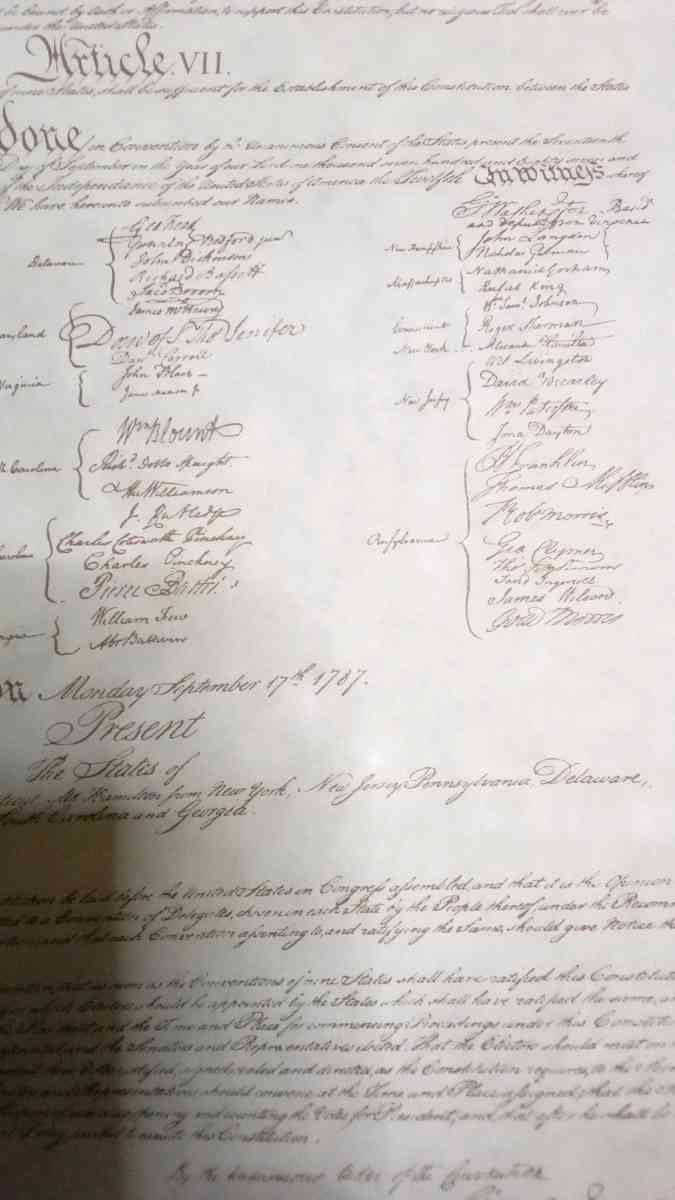 be bound by Oath or Affirmation, to support this Constitution; but no religious Test shall ever be
under the United States.
Article. VII.
of nine States, shall be sufficient for the Establishment of this Constitution between the States
done in Convention by the Unanimous Consent of the States present the Seventeenth
Day of September in the Year of our Lord one thousand seven hundred and Eighty seven and
of the Independance of the United States of America the Twelfth In Witness whereof
We have hereunto subscribed our Names,
Go: Washington Presidt
and deputy from Virginia
Delaware
Geo: Read
Gunning Bedford jun
John Dickinson
Richard Bassett
Jaco: Broom
James McHenry
Dan of St Thos Jenifer
Danl Carroll
John Blair
James Madison Jr
Wm Blount
Richd Dobbs Spaight.
Hu Williamson
J. Rutledge
Charles Cotesworth Pinckney
Charles Pinckney
Pierce Butler
William Few
Abr Baldwin
New Hampshire
John Langdon
Nicholas Gilman
Massachusetts
Nathaniel Gorham
Rufus King
Connecticut
Wm Saml Johnson
Roger Sherman
New York
Alexander Hamilton
New Jersey
Wil Livingston
David Brearley
Wm Paterson
Jona Dayton
Pensylvania
B Franklin
Thomas Mifflin
Robt Morris
Geo. Clymer
Thos FitzSimons
Jared Ingersoll
James Wilson.
Gouv Morris
Monday September 17th 1787.
Present
The States of
Mr. Hamilton from New York, New Jersey, Pennsylvania, Delaware,
South Carolina and Georgia.
be laid before the United States in Congress assembled, and that it is the Opinion
to a Convention of Delegates, chosen in each State by the People thereof, under the Recom
and that each Convention assenting to, and ratifying the Same, should give Notice
that as soon as the Conventions of nine States shall have ratified this Constitut
on which Electors should be appointed by the States which shall have ratified the same,
President and the Time and Place for commencing Proceedings under this Constitu
and the Senators and Representatives elected: That the Electors should meet on
certified, signed, sealed and directed, as the Constitution requires, to the
and Representatives should convene at the Time and Place assigned; that the
opening and counting the Votes for President; and, that after he shall be
to execute this Constitution.
By the unanimous Order of the Convention